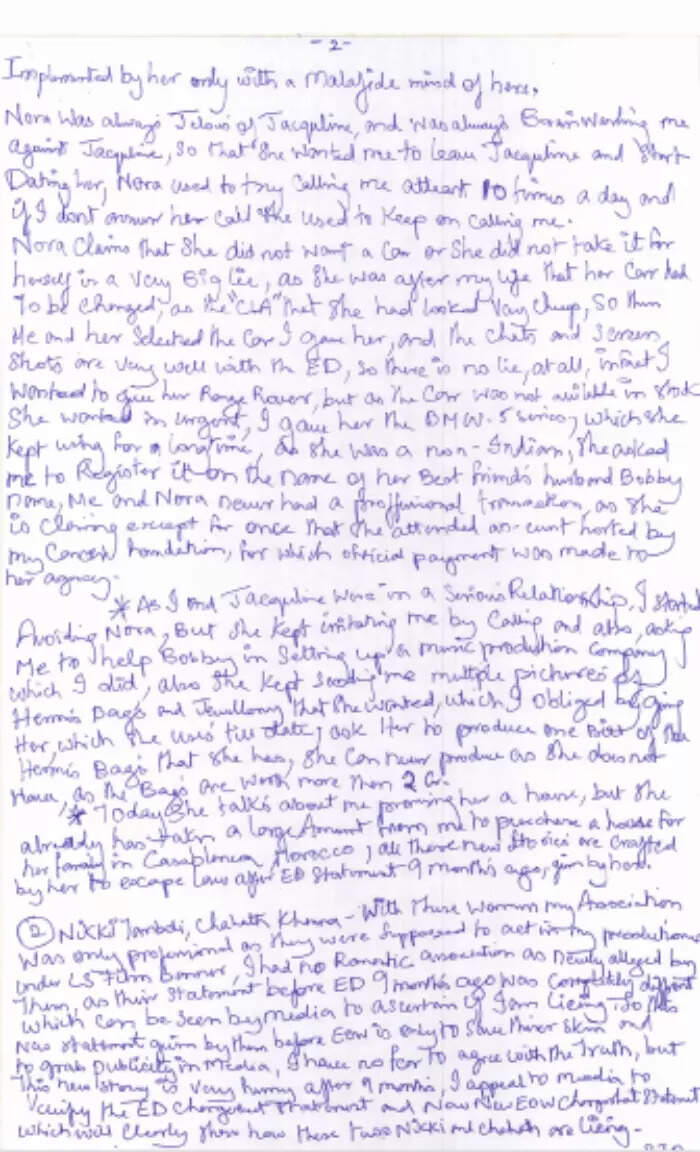 - 2 -
Implemented by her only with a Malafide mind of hers.
Nora was always Jelous of Jacquline, and was always Brainwashing me
against Jacqline, so that she wanted me to leave Jacquline and start
Dating her, Nora used to try calling me atleast 10 times a day and
if I dont answer her call she used to keep on calling me.
Nora claims that she did not want a Car or she did not take it for
herself is a very Big lie, as she was after my life that her Car had
To be changed, as the "CLA" that she had looked very cheap, so then
Me and her selected the Car I gave her, and the chats and screen
shots are very well with the ED, so there is no lie, at all, infact I
wanted to give her Range Rover, but as the Car was not avilable in stock
She wanted in urgent, I gave her the BMW-5 series, which she
Kept using for a longtime, as she was a non-Indian, she asked
me to Register it on the name of her Best friends husband Bobby
name, Me and Nora never had a proffesional transaction, as she
is claiming except for once that she attended an event hosted by
my Cancer foundation, for which official payment was made to
her agency.
* As I and Jacquline were in a Serious Relationship, I started
Avoiding Nora, But she kept irritating me by Calling and also, asking
Me to help Bobby in Setting up a music production company
which I did, also she kept sending me multiple pictures of
Hermis Bags and Jewellery that she wanted, which I obliged by giving
Her, which she uses till date, ask Her to produce one Bill of the
Hermis Bags that she has, she can never produce as she does not
Have, as the Bags are worth more than 2 Cr.
* Today she talks about me promising her a house, but she
already has taken a large Amount from me to purchase a house for
her family in Casablanca, Morocco, all these new stories are crafted
by her to escape Law after ED Statement 9 months ago, given by her.
② Nikki Tamboli, Chahath Khanna - With these women my Association
was only professional as they were supposed to act in my productions
under LS Film Banner, I had no Romantic association as newly alleged by
Them, as their statement before ED 9 months ago was completely different
which can be seen by media to ascertain if I am lieing. So this
New statement given by them before EOW is only to save their skin and
to grab publicity in Media, I have no fear to agree with the Truth, but
This new story is very funny after 9 months, I appeal to media to
Verify the ED Chargesheet Statement and Now New EOW Chargesheet Statement
which will clearly show how these two Nikki and chahath are lieing -
P.T.O